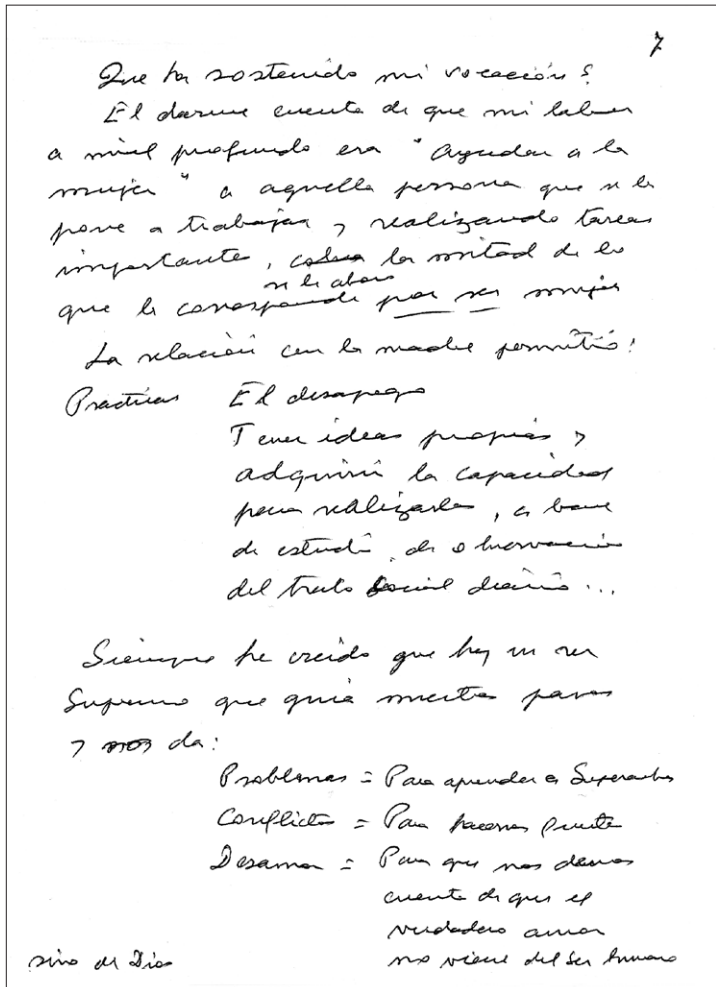 7
Que ha sostenido mi vocación?
El darme cuenta de que mi labor
a nivel profundo era "Ayudar a la
mujer" a aquella persona que se le
pone a trabajar y realizando tareas
importante, la mitad de lo
se le abona
que le corresponde por ser mujer
La relación con la madre permitió:
Practicar El desapego
Tener ideas propias y
adquirir la capacidad
para realizarlas, a base
de estudio, de observación
del trato social diario...
Siempre he creido que hay un ser
Supremo que guia nuestros pasos
y nos da:
Problemas = Para aprender a Superarlos
Conflictos = Para hacernos fuerte
Desamor = Para que nos demos
cuenta de que el
verdadero amor
no viene del Ser humano
sino de Dios